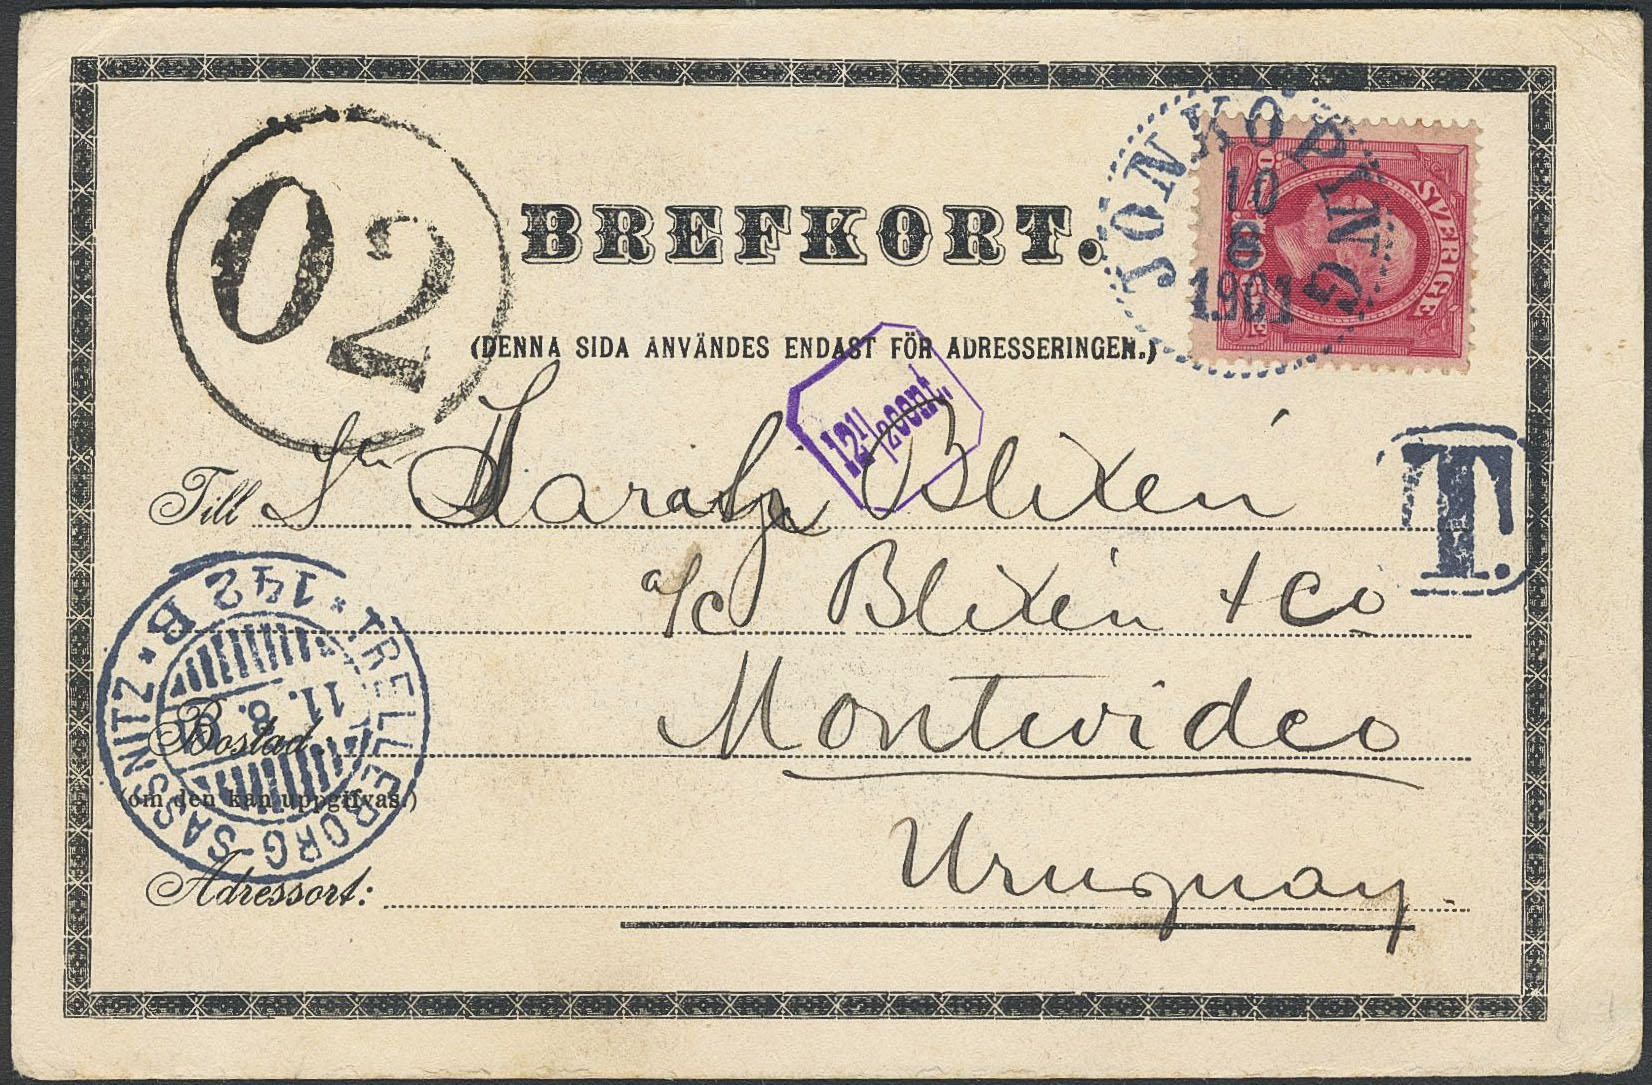 02
BREFKORT.
JÖNKÖPING
10
8
1901
SVERIGE
(DENNA SIDA ANVÄNDES ENDAST FÖR ADRESSERINGEN.)
12 1/2 cent.
T.
Till Blixén
a/c Blixén & Co
Montevideo
Bostad
(om den kan uppgifvas.)
TRELLEBORG-SASSNITZ * 142 B *
11.8.
Uruguay
Adressort: